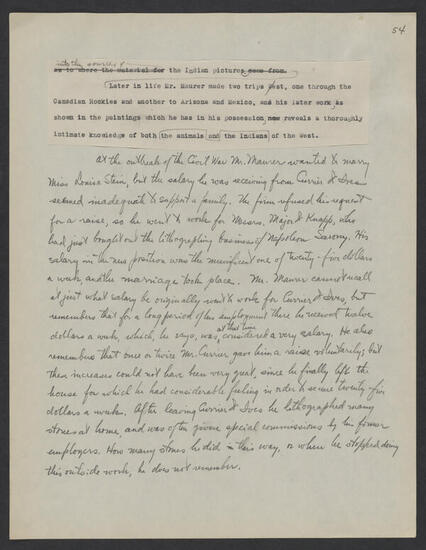 54
into the sources of
as to where the material for the Indian pictures came from.
Later in life Mr. Maurer made two trips West, one through the
Canadian Rockies and another to Arizona and Mexico, and his later work, as
shown in the paintings which he has in his possession, now reveals a thoroughly
intimate knowledge of both the animals and the Indians of the West.
At the outbreak of the Civil War Mr. Maurer wanted to marry
Miss Louisa Stein, but the salary he was receiving from Currier & Ives
seemed inadequate to support a family. The firm refused his request
for a raise, so he went to work for Messrs. Major & Knapp, who
had just bought out the lithographing business of Napoleon Sarony. His
salary in the new position was the munificent one of twenty-five dollars
a week, and the marriage took place. Mr. Maurer cannot recall
at just what salary he originally went to work for Currier & Ives, but
remembers that for a long period of his employment there he received twelve
dollars a week, which, he says, was, considered a very salary. He also
at this time
remembers that once or twice Mr. Currier gave him a raise voluntarily; but
these increases could not have been very great, since he finally left the
house for which he had considerable feeling in order to secure twenty-five
dollars a week. After leaving Currier & Ives he lithographed many
stones at home, and was often given special commissions by his former
employers. How many stones he did in this way, or when he stopped doing
this outside work, he does not remember.